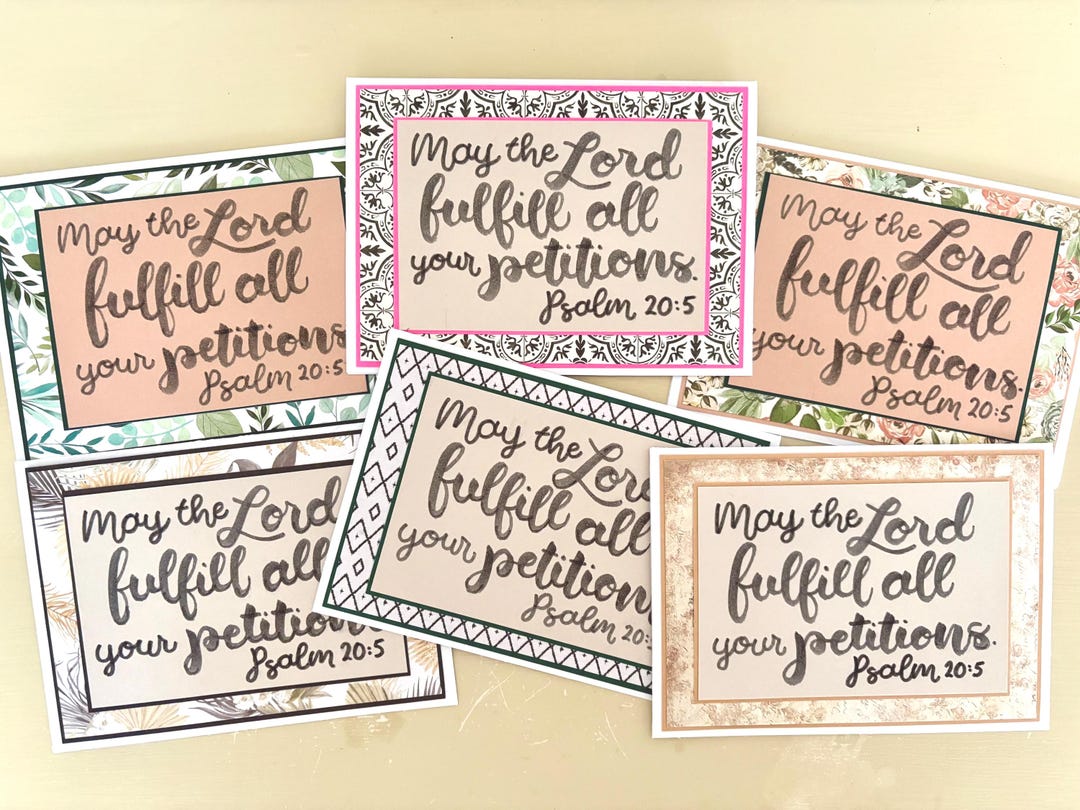 May the Lord
fulfill all
your petitions.
Psalm 20:5
May the Lord
fulfill all
your petitions
Psalm 20:5
May the Lord
fulfill all
your petitions.
Psalm 20:5
May the Lord
fulfill all
your petition
Psalm 20:5
May the Lor
fulfill all
your petition
Psalm 20:
May the Lord
fulfill all
your petitions.
Psalm 20:5